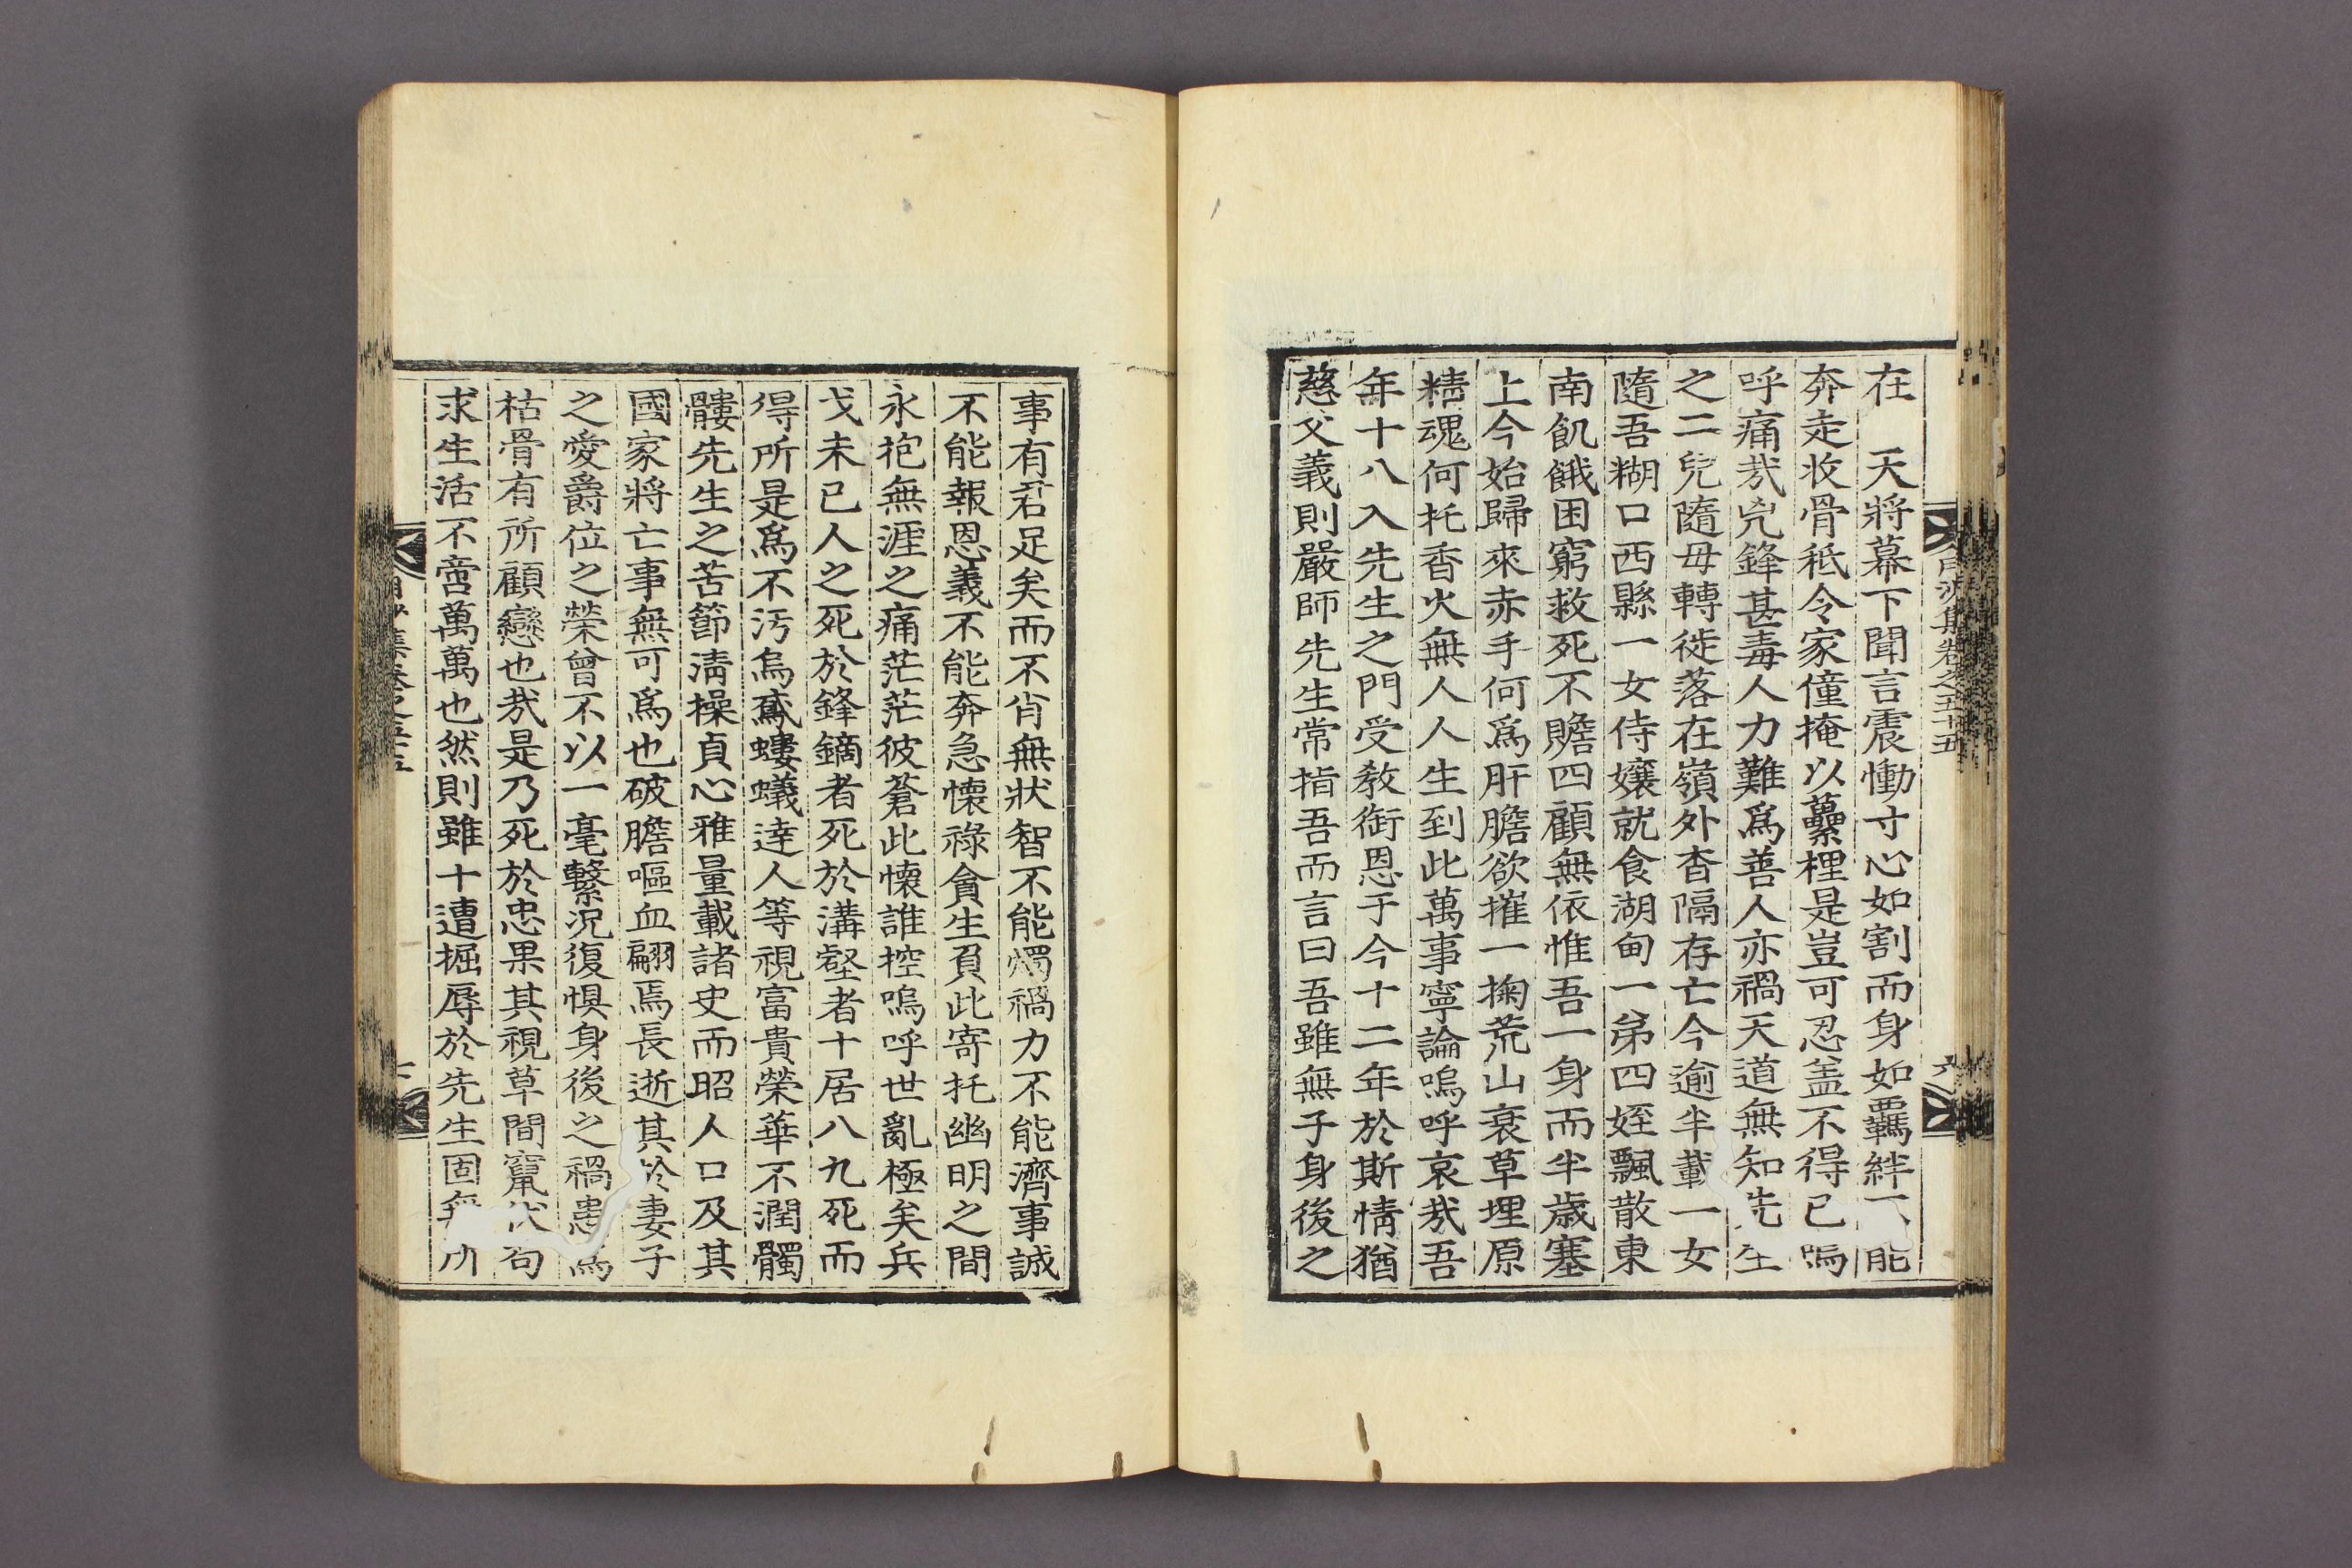 在 天將幕下聞言震慟寸心如割而身如羈絆不能
奔走收骨秪令家僮掩以虆梩是豈可忍盖不得已嗚
呼痛㢤兇鋒甚毒人力難爲善人亦禍天道無知先生
之二兒隨母轉徙落在嶺外杳隔存亡今逾半載一女
隨吾糊口西縣一女侍孃就食湖甸一弟四姪飄散東
南飢餓困窮救死不贍四顧無依惟吾一身而半歲塞
上今始歸來赤手何爲肝膽欲摧一掬荒山衰草埋原
精魂何托香火無人人生到此萬事寧論嗚呼哀㢤吾
年十八入先生之門受敎銜恩于今十二年於斯情猶
慈父義則嚴師先生常指吾而言曰吾雖無子身後之
集卷之五十五
六
事有君足矣而不肖無狀智不能燭禍力不能濟事誠
不能報恩義不能奔急懷祿貪生負此寄托幽明之間
永抱無涯之痛茫茫彼蒼此懷誰控嗚呼世亂極矣兵
戈未已人之死於鋒鏑者死於溝壑者十居八九死而
得所是爲不汚烏鳶螻蟻達人等視富貴榮華不潤髑
髏先生之苦節淸操貞心雅量載諸史而昭人口及其
國家將亡事無可爲也破膽嘔血翩焉長逝其於妻子
之愛爵位之榮曾不以一毫繫况復惧身後之禍患爲
枯骨有所顧戀也㢤是乃死於忠果其視草間竄伏苟
求生活不啻萬萬也然則雖十遭掘辱於先生固無所
集卷之五十五